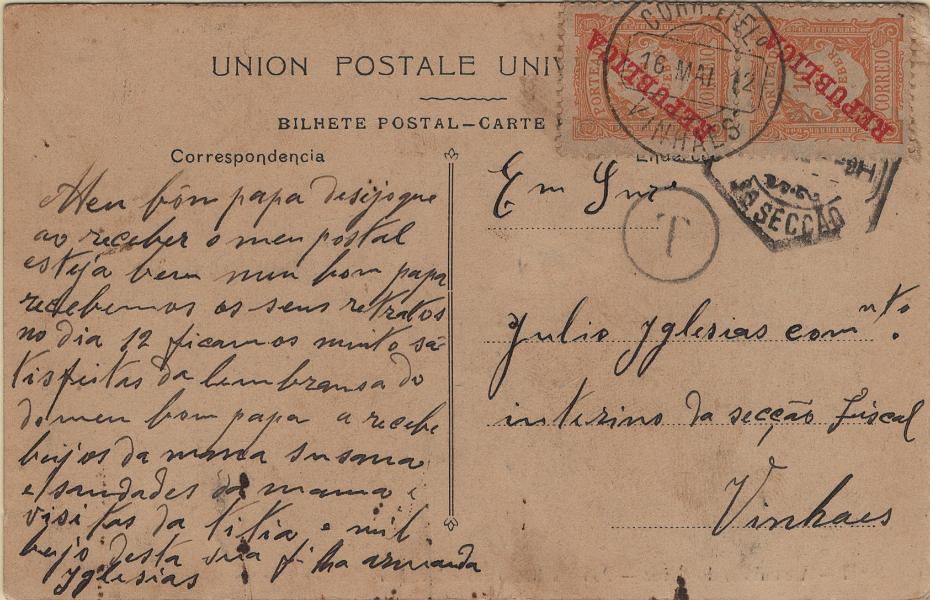 UNION POSTALE UNIV
BILHETE POSTAL—CARTE
Correspondencia
Meu bôm papa desijoque
ao receber o meu postal
esteja bem meu bom papa
recebemos os seus retratos
no dia 12 ficamos muito sa
tisfeitas da lembransa do
do meu bom papa a recebe
beijos da mana susana
e saudades da mama i
visitas da titia e mil
beijo desta sua filha armanda
Yglesias
PORTEADO CORREIO
REPUBLICA
CORREIO
RECEBER
REPUBLICA
16 MAI 12
VINHAES
SECCÃO
T
Em Snr
Julio Yglesias comnto.
interino da secção fiscal
Vinhaes